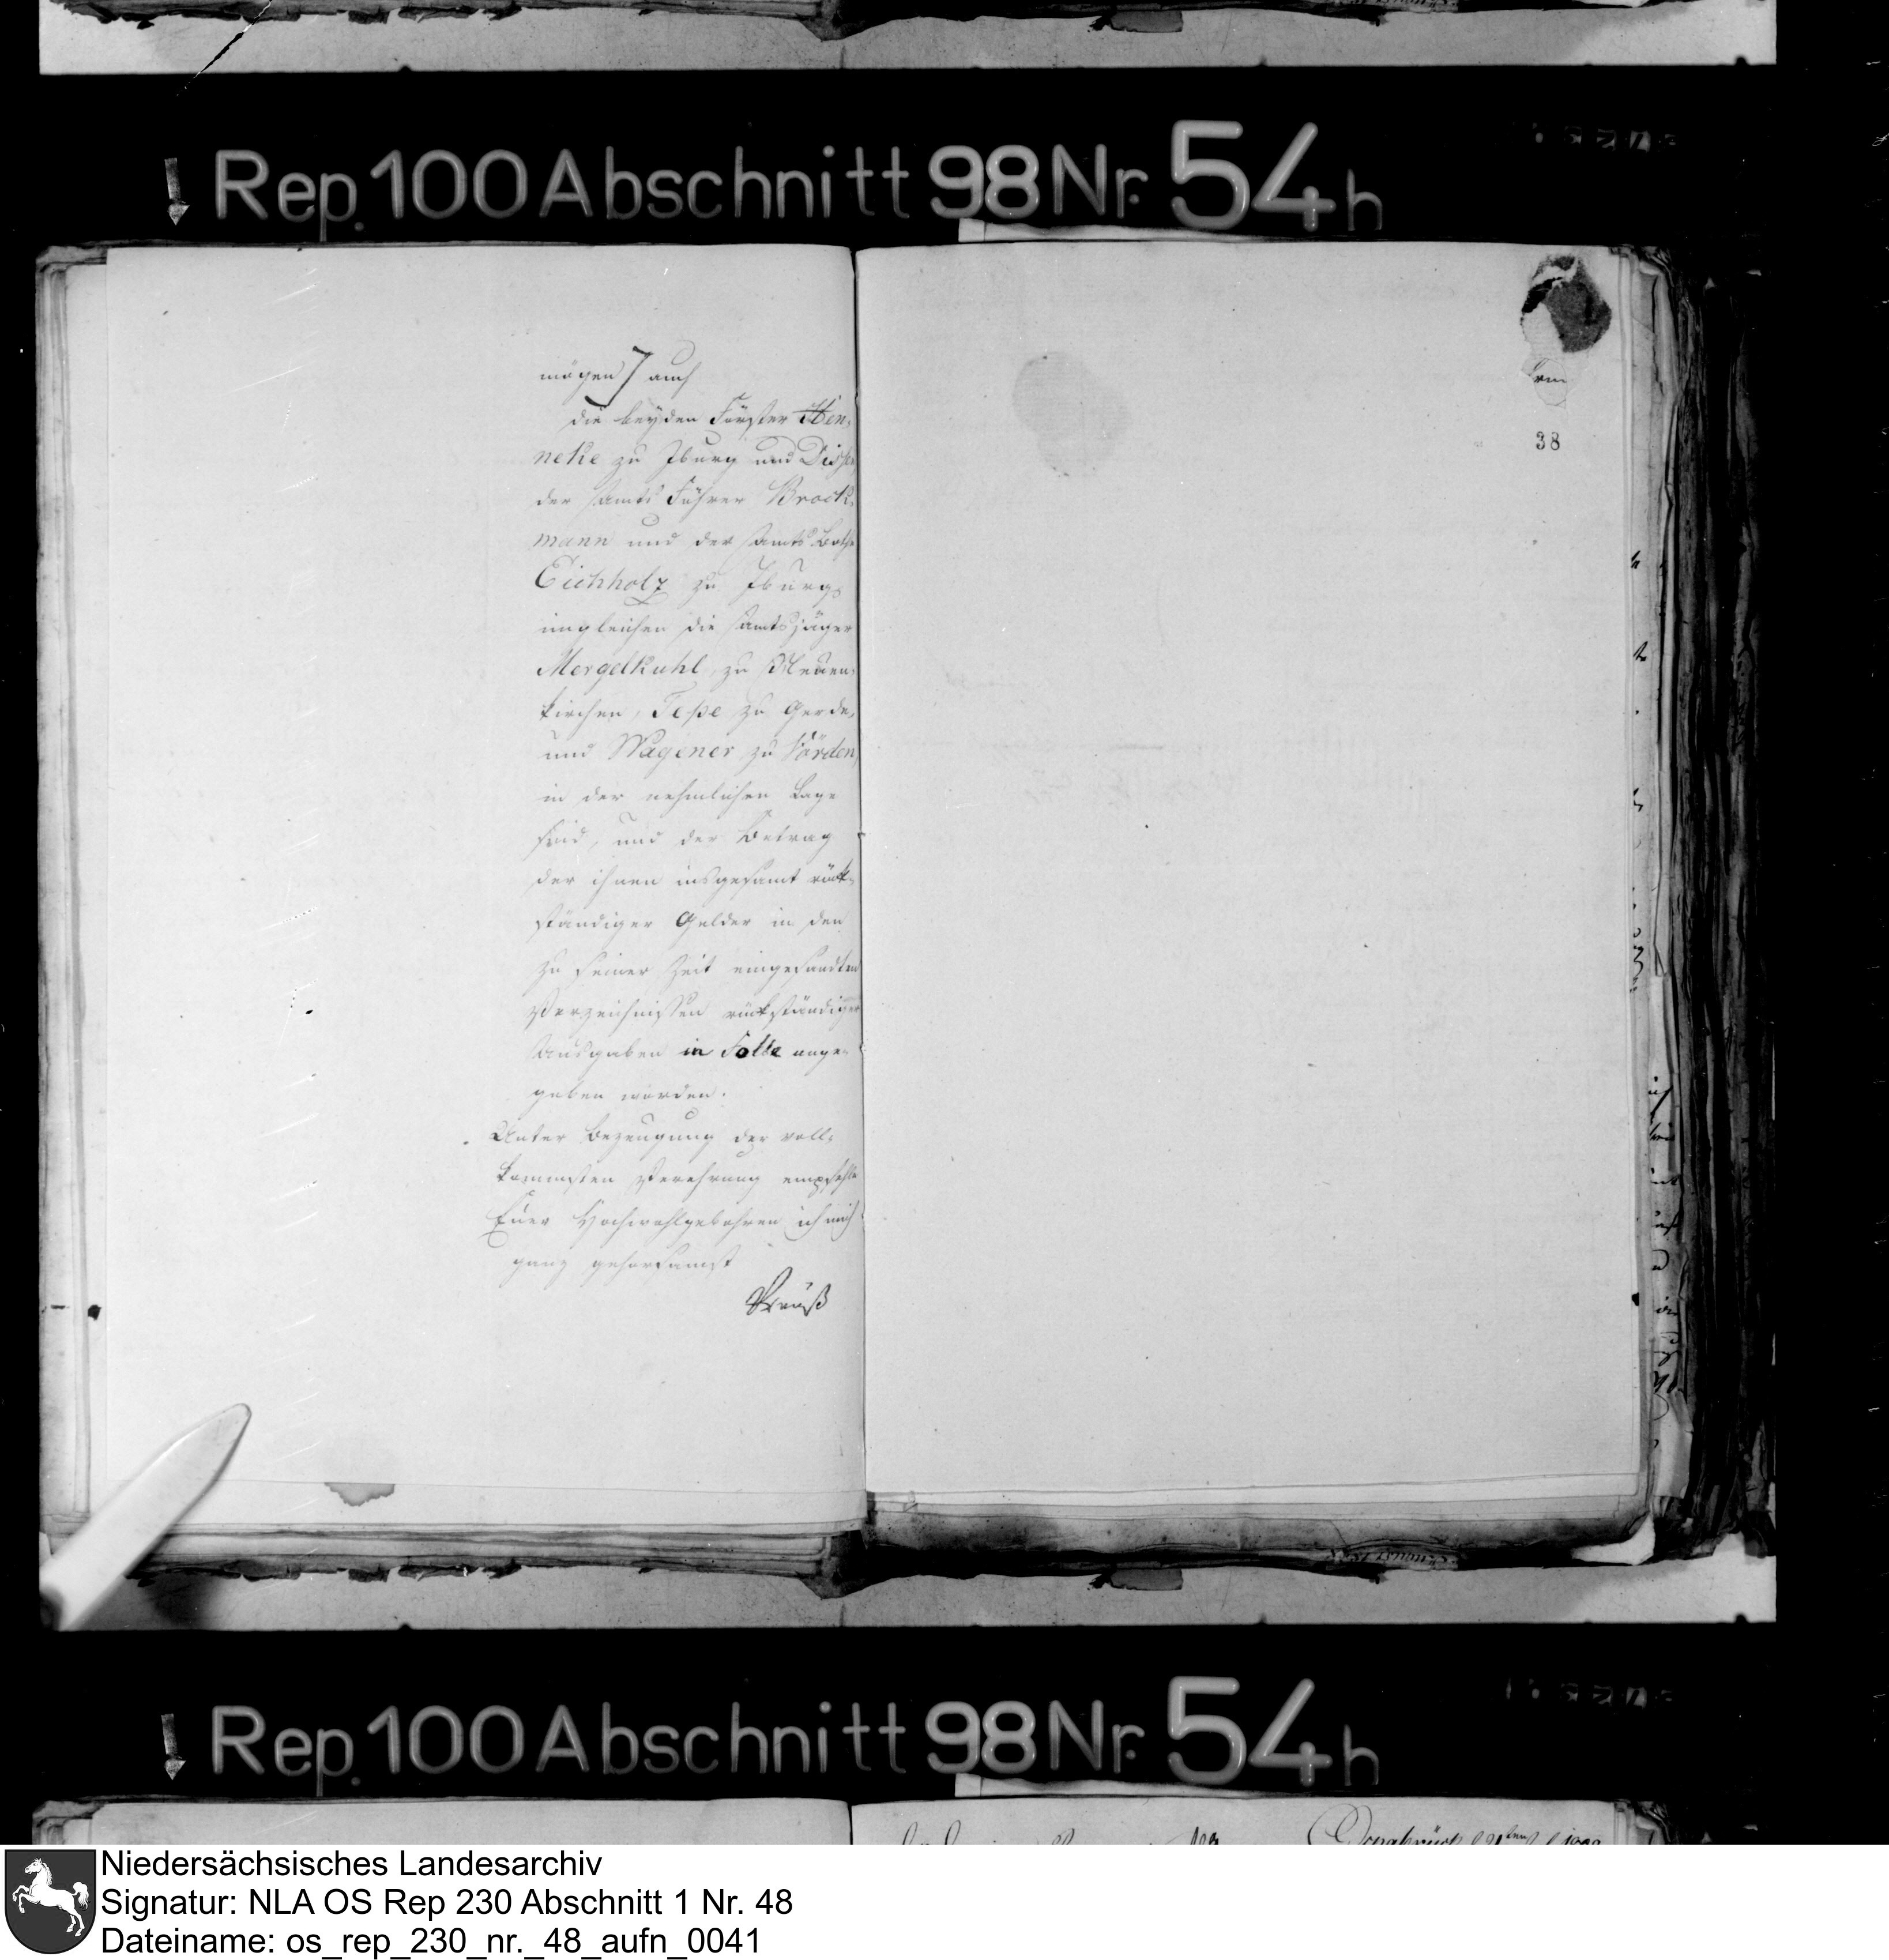 Rep. 100 Abschnitt 98 Nr. 54 h
mögen / auch
die beyden Förster Hen-
neke zu Iburg und Dissen
der Amts Führer Brock-
mann und der Amts Bothe
Eichholz zu Iburg,
imgleichen die Amtsjäger
Mergelkuhl, zu Neuen-
kirchen, Teße zu Gerde,
und Wagener zu Vörden,
in der nehmlichen Lage
sind, und der Betrag
der ihnen insgesamt rück-
ständiger Gelder in den
zu seiner Zeit eingesandten
Verzeichnissen rückständiger
Ausgaben in Folle ange-
geben worden.
Unter Bezeugung der voll-
kommsten Verehrung empfehle
Euer Hochwohlgebohren ich mich
ganz gehorsamst
Preuß
38
Rep. 100 Abschnitt 98 Nr. 54 h
Niedersächsisches Landesarchiv
Signatur: NLA OS Rep 230 Abschnitt 1 Nr. 48
Dateiname: os_rep_230_nr._48_aufn_0041